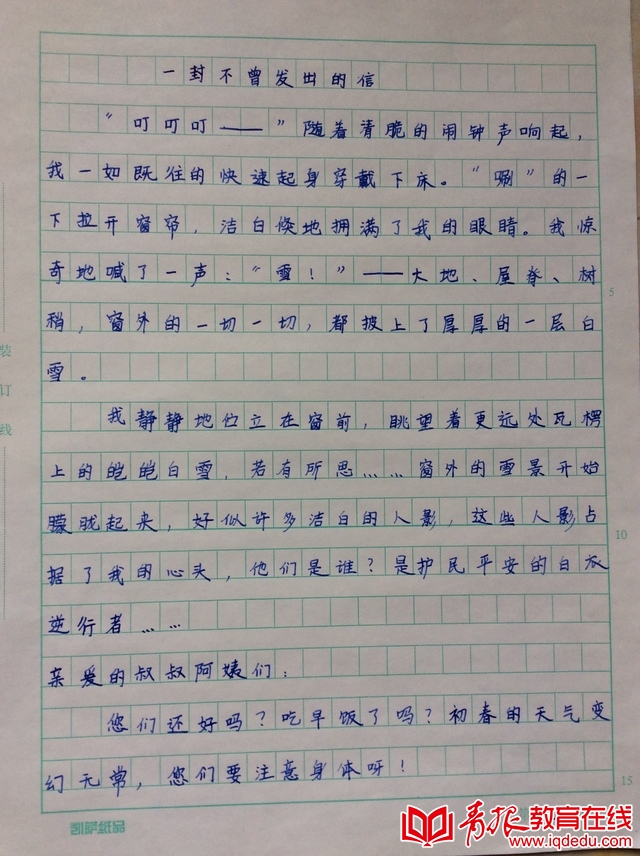 一封不曾发出的信
“叮叮叮——”随着清脆的闹钟声响起，
我一如既往的快速起身穿戴下床。“唰”的一
下拉开窗帘，洁白倏地拥满了我的眼睛。我惊
奇地喊了一声：“雪！”——大地、屋脊、树
稍，窗外的一切一切，都披上了厚厚的一层白
雪。
我静静地伫立在窗前，眺望着更远处瓦楞
上的皑皑白雪，若有所思……窗外的雪景开始
朦胧起来，好似许多洁白的人影，这些人影占
据了我的心头，他们是谁？是护民平安的白衣
逆行者……
亲爱的叔叔阿姨们：
您们还好吗？吃早饭了吗？初春的天气变
幻无常，您们要注意身体呀！
装
订
线
5
10
15
青报教育在线
www.iqdedu.com